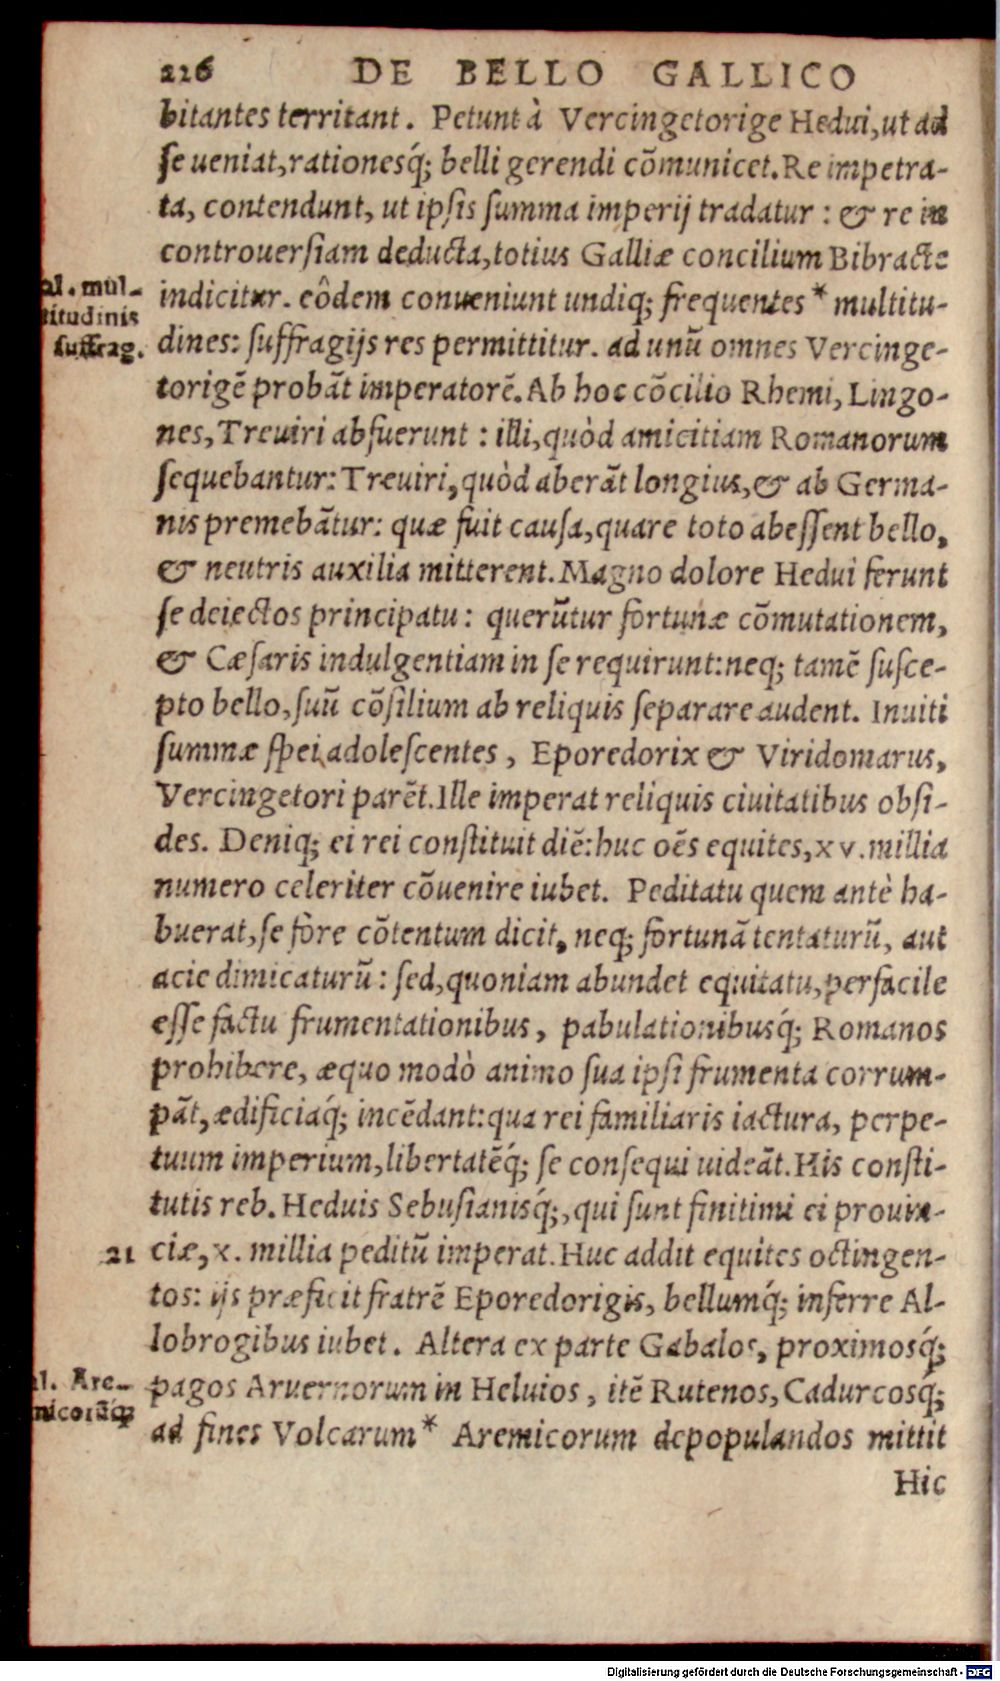 226 DE BELLO GALLICO
bitantes territant. Petunt à Vercingetorige Hedui, ut ad
se ueniat, rationesq́; belli gerendi cõmunicet. Re impetra-
ta, contendunt, ut ipsis summa imperij tradatur: & re in
controuersiam deducta, totius Galliæ concilium Bibracte
indicitur. eôdem conueniunt undiq; frequentes * multitu-
al. mul-
titudinis
suffrag.
dines: suffragijs res permittitur. ad unũ omnes Vercinge-
torigẽ probãt imperatorẽ. Ab hoc cõcilio Rhemi, Lingo-
nes, Treuiri abfuerunt: illi, quòd amicitiam Romanorum
sequebantur: Treuiri, quòd aberãt longius, & ab Germa-
nis premebãtur: quæ fuit causa, quare toto abessent bello,
& neutris auxilia mitterent. Magno dolore Hedui ferunt
se deiectos principatu: querũtur fortunæ cõmutationem,
& Cæsaris indulgentiam in se requirunt: neq; tamẽ susce-
pto bello, suũ cõsilium ab reliquis separare audent. Inuiti
summæ spei adolescentes, Eporedorix & Viridomarus,
Vercingetori parẽt. Ille imperat reliquis ciuitatibus obsi-
des. Deniq; ei rei constituit diẽ: huc oẽs equites, xv. millia
numero celeriter cõuenire iubet. Peditatu quem antè ha-
buerat, se fore cõtentum dicit, neq; fortunã tentaturũ, aut
acie dimicaturũ: sed, quoniam abundet equitatu, perfacile
esse factu frumentationibus, pabulationibusq́; Romanos
prohibere, æquo modò animo sua ipsi frumenta corrum-
pãt, ædificiaq́; incẽdant: qua rei familiaris iactura, perpe-
tuum imperium, libertatẽq́; se consequi uideãt. His consti-
tutis reb. Heduis Sebusianisq́;, qui sunt finitimi ei prouin-
21 ciæ, x. millia peditũ imperat. Huc addit equites octingen-
tos: ijs præficit fratrẽ Eporedorigis, bellumq́; inferre Al-
lobrogibus iubet. Altera ex parte Gabalos, proximosq́;
pagos Aruernorum in Heluios, itẽ Rutenos, Cadurcosq́;
al. Are-
micorũq́;
ad fines Volcarum * Aremicorum depopulandos mittit
Hic
Digitalisierung gefördert durch die Deutsche Forschungsgemeinschaft - DFG